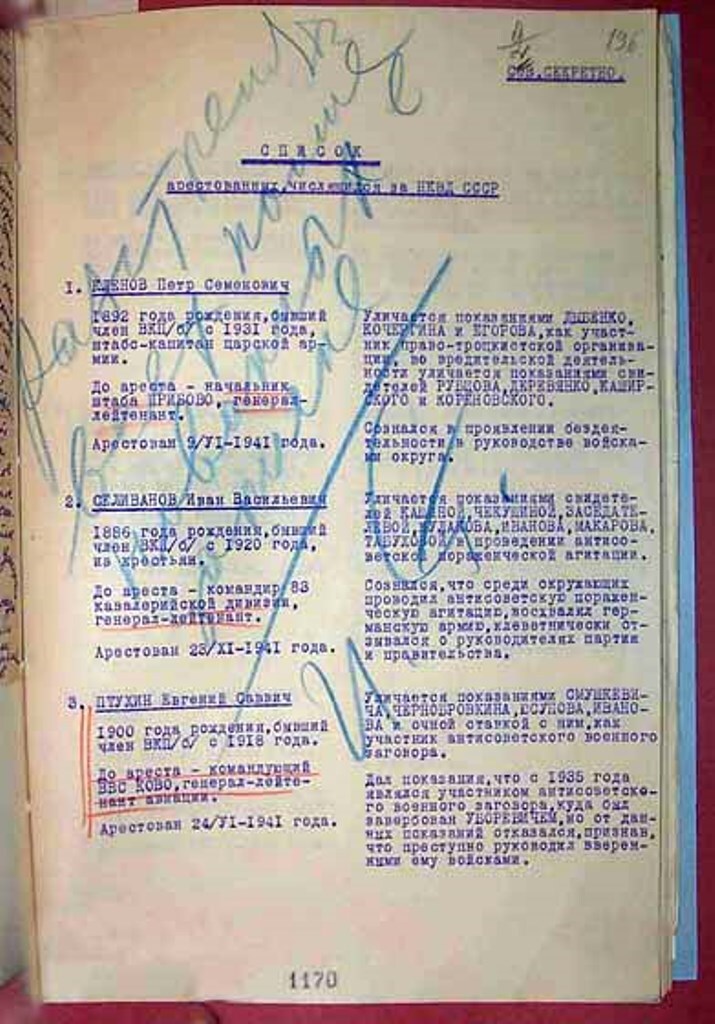 196
Сов.СЕКРЕТНО.
СПИСОК
арестованных, числящихся за НКВД СССР
1. КЛЕНОВ Петр Семенович
1892 года рождения, бывший
член ВКП/б/ с 1931 года,
штабс-капитан царской ар-
мии.
До ареста - начальник
штаба ПРИБОВО, генерал-
лейтенант.
Арестован 9/УІ-1941 года.
Уличается показаниями ДЫБЕНКО,
КОЧЕРГИНА и ЕГОРОВА, как участ-
ник право-троцкистской организа-
ции, во вредительской деятель-
ности уличается показаниями сви-
детелей РУБЦОВА, ДЕРЕВЯНКО, КАШИР-
СКОГО и КОРЕНОВСКОГО.
Сознался в проявлении бездея-
тельности в руководстве войска-
ми округа.
2. СЕЛИВАНОВ Иван Васильевич
1886 года рождения, бывший
член ВКП/б/ с 1920 года,
из крестьян.
До ареста - командир 83
кавалерийской дивизии,
генерал-лейтенант.
Арестован 23/ХІ-1941 года.
Уличается показаниями свидете-
лей КАШИНОЙ, ЧЕКУШИНОЙ, ЗАСЕДАТЕ-
ЛЕВОЙ, КУЛАКОВА, ИВАНОВА, МАКАРОВА,
ТАБУХОВОЙ в проведении антисо-
ветской пораженческой агитации.
Сознался, что среди окружающих
проводил антисоветскую поражен-
ческую агитацию, восхвалял гер-
манскую армию, клеветнически от-
зывался о руководителях партии
и правительства.
3. ПТУХИН Евгений Саввич
1900 года рождения, бывший
член ВКП/б/ с 1918 года.
До ареста - командующий
ВВС КОВО, генерал-лейте-
нант авиации.
Арестован 24/УІ-1941 года.
Уличается показаниями СМУШКЕВИ-
ЧА, ЧЕРНОБРОВКИНА, ЮСУПОВА, ИВАНО-
ВА и очной ставкой с ним, как
участник антисоветского военного
заговора.
Дал показания, что с 1935 года
являлся участником антисоветско-
го военного заговора, куда был
завербован УБОРЕВИЧЕМ, но от дан-
ных показаний отказался, признав,
что преступно руководил вверен-
ными ему войсками.
Расстрелять
всех поименованных
в списке
И. Ст.
1170